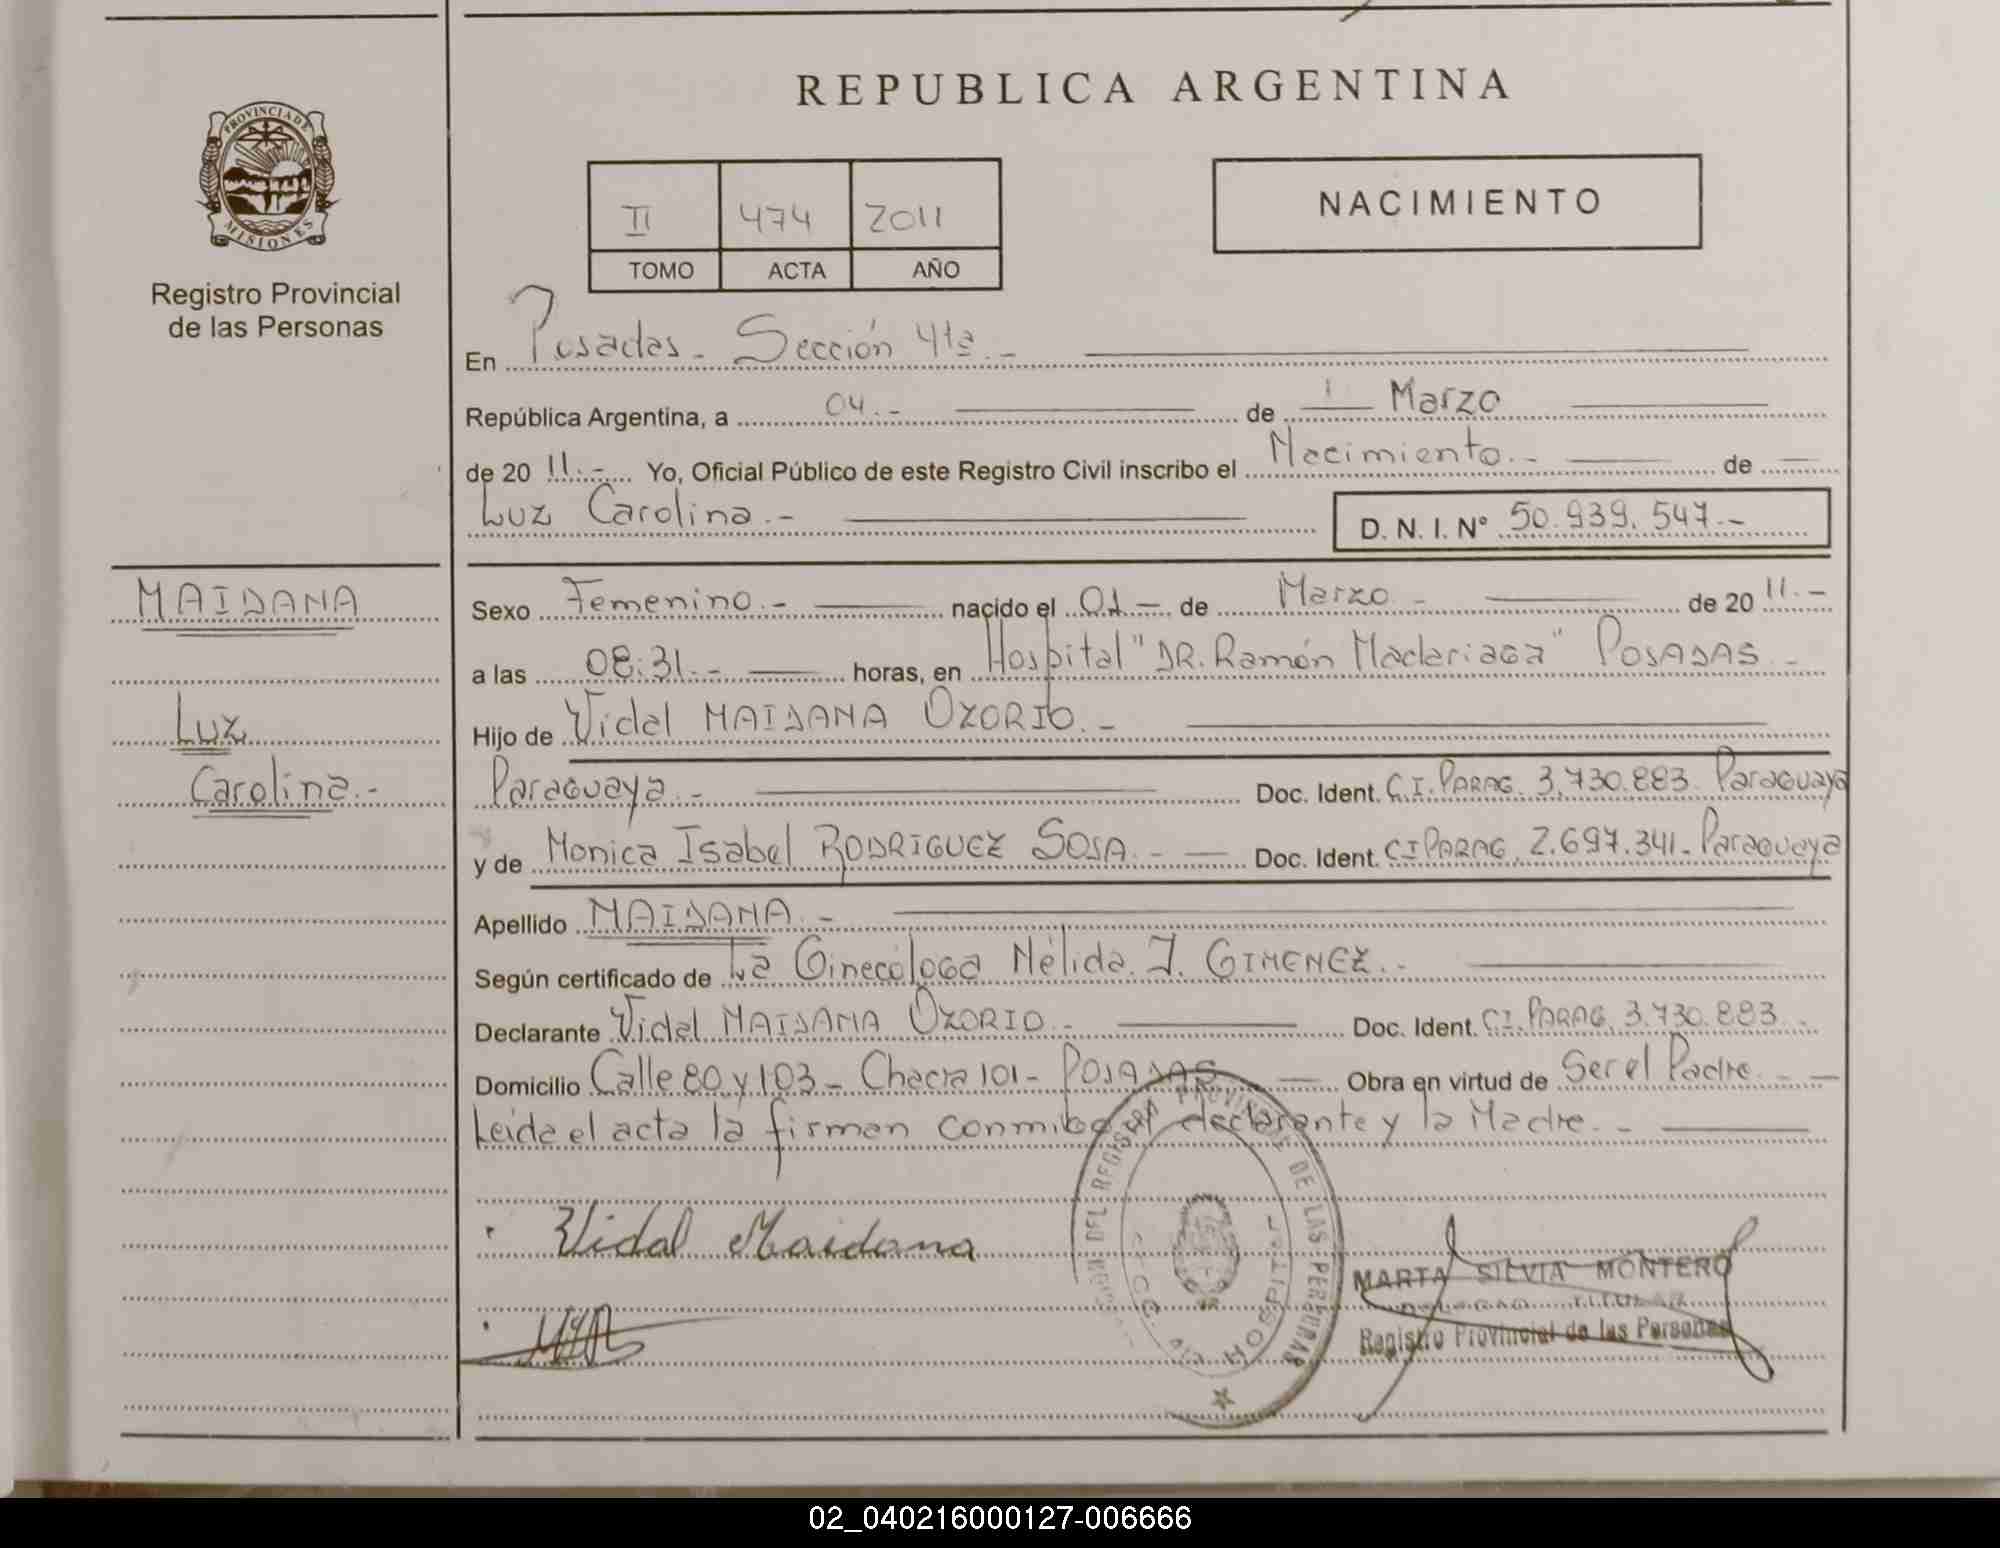 REPUBLICA ARGENTINA
PROVINCIA DE
MISIONES
Registro Provincial
de las Personas
II 474 2011
TOMO ACTA AÑO
NACIMIENTO
En Posadas - Sección 4ta.-
República Argentina, a 04.- de Marzo
de 20 11.- Yo, Oficial Público de este Registro Civil inscribo el Nacimiento.- de
Luz Carolina.- D. N. I. Nº 50.939.547.-
MAIDANA
Luz
Carolina.-
Sexo Femenino.- nacido el 01- de Marzo.- de 20 11.-
a las 08:31.- horas, en Hospital "DR. Ramón Madariaga" POSADAS.-
Hijo de Vidal MAIDANA OZORIO.-
Paraguaya.- Doc. Ident. C.I. PARAG. 3.730.883. Paraguaya
y de Monica Isabel RODRIGUEZ SOSA.- Doc. Ident. CI PARAG. 2.697.341- Paraguaya
Apellido MAIDANA.-
Según certificado de La Ginecóloga Nélida. J. GIMENEZ.-
Declarante Vidal MAIDANA OZORIO.- Doc. Ident. CI. PARAG. 3.730.883.-
Domicilio Calle 80 y 103- Chacra 101- POSADAS Obra en virtud de Ser el Padre.-
Leida el acta la firman conmigo el declarante y la Madre.-
DEL REGISTRO PROVINCIAL DE LAS PERSONAS
HOSPITAL
Vidal Maidana
MARTA SILVIA MONTERO
DELEGADO TITULAR
Registro Provincial de las Personas
02_040216000127-006666